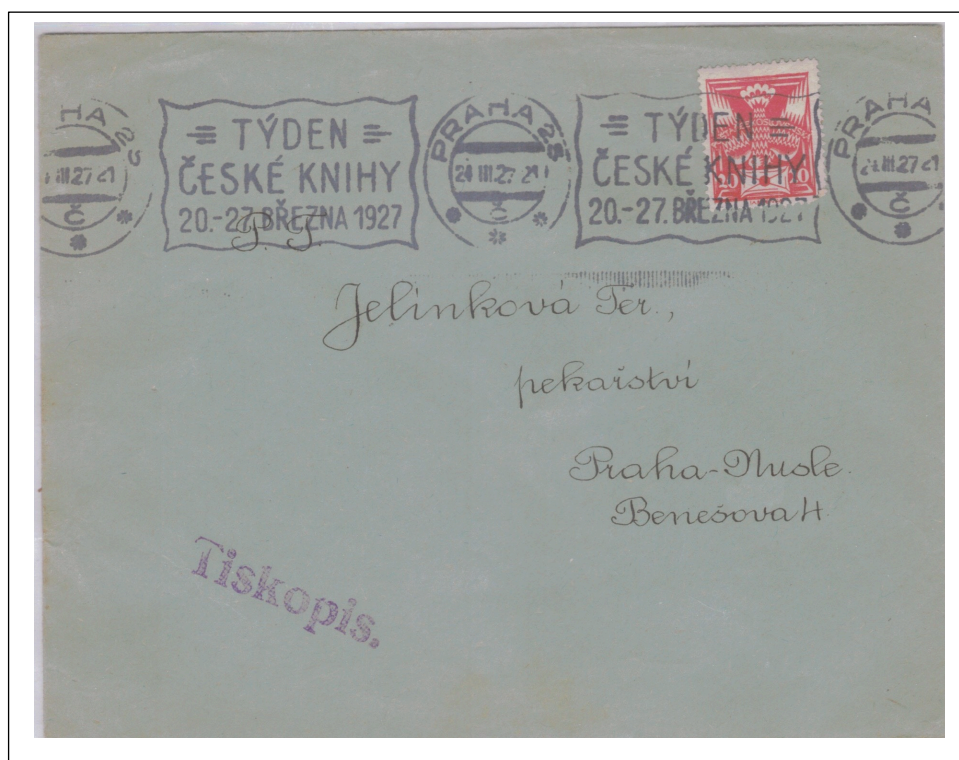 PRAHA 25
III.27 21
Č
TÝDEN
ČESKÉ KNIHY
20.-27. BŘEZNA 1927
PRAHA 25
24 III.27 21
Č
TÝDEN
ČESKÉ KNIHY
20.-27. BŘEZNA 1927
PRAHA
III.27 21
Č
20 20
P. T.
Jelinková Ter.,
pekařství
Praha-Nusle.
Benešova 4
Tiskopis.